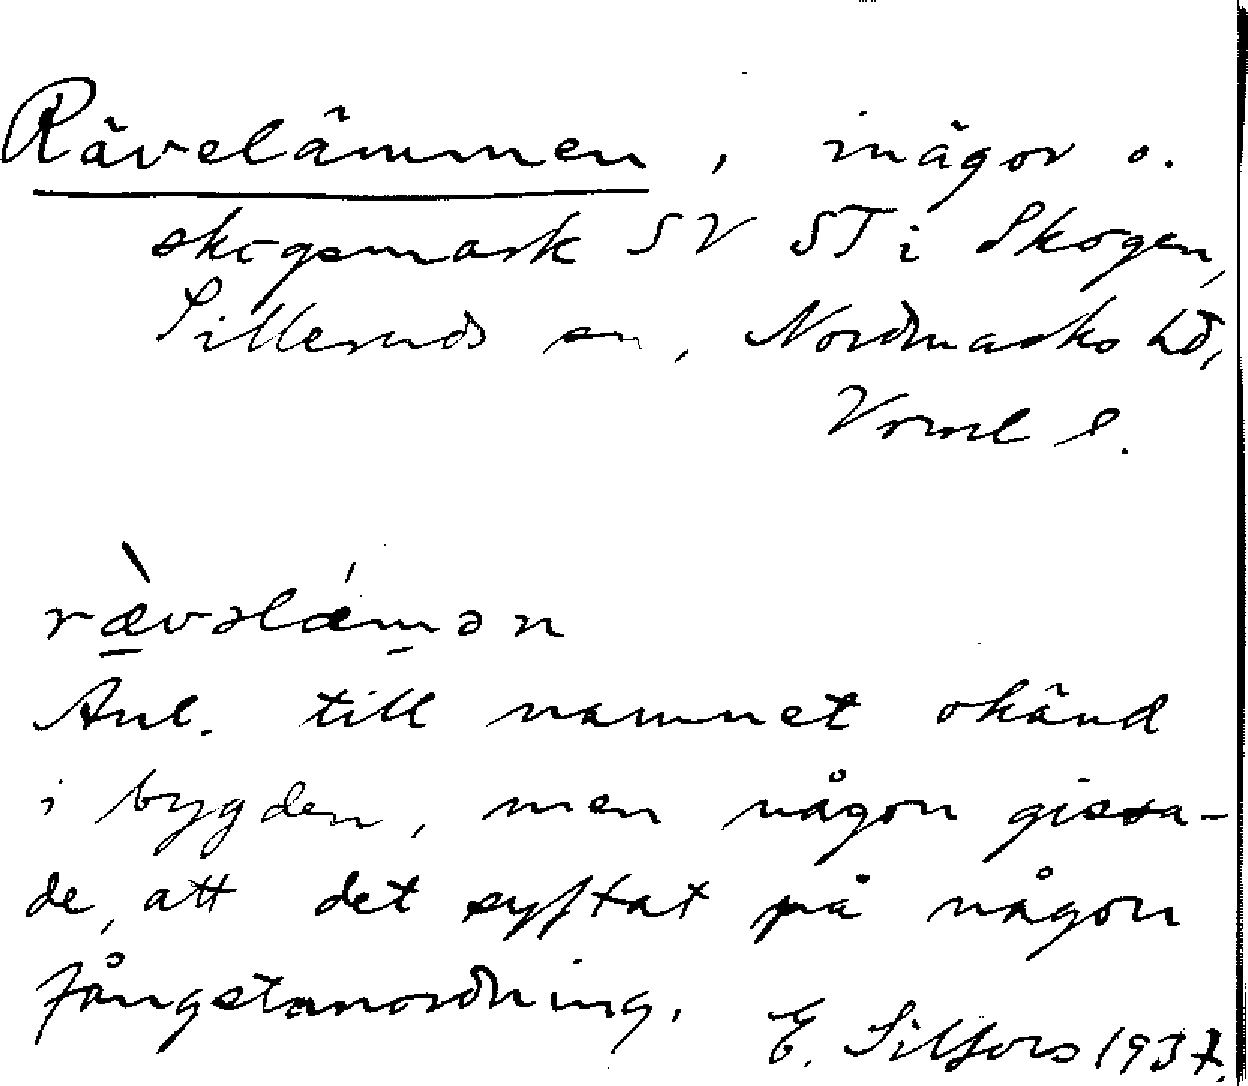 Rävelämmen, inägor o.
skogsmark SV ST i Skogen,
Silleruds sn, Nordmarks hd,
Vrml l.
rævəlæmən
Anl. till namnet okänd
i bygden, men någon gissa-
de, att det syftat på någon
fångstanordning.
E. Silfors 1937.